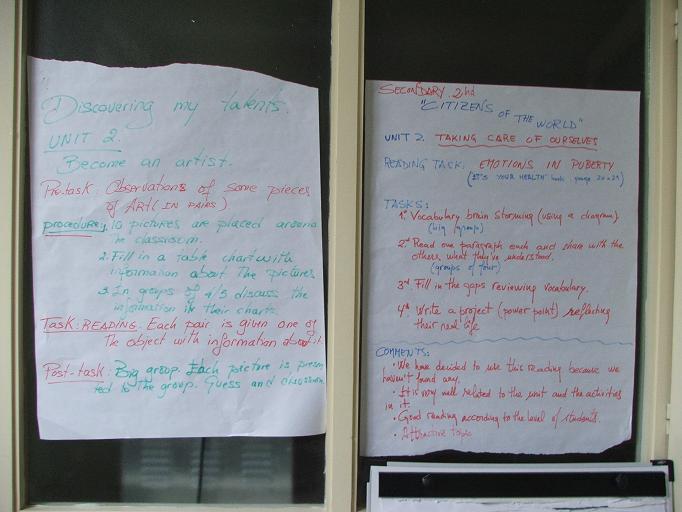 Discovering my talents.
UNIT 2.
Become an artist.
Pre.task: Observations of some pieces
of ART (IN PAIRS)
procedure: 1. 10 pictures are placed around
the classroom.
2. Fill in a table chart with
information about The pictures
3. In groups of 4/5 discuss the
information in their charts.
Task: READING. Each pair is given one of
the object with information about it.
Post-task: Big group. Each picture is presen
ted to the group. Guess and discussion
SECONDARY 2nd
"CITIZENS OF THE WORLD"
UNIT 2. TAKING CARE OF OURSELVES
READING TASK: EMOTIONS IN PUBERTY
("IT'S YOUR HEALTH" book
TASKS:
1st Vocabulary brain storming (using a diagram)
(big group)
2nd Read one paragraph each and share with the
others what they've understood.
(groups of four)
3rd Fill in the gaps reviewing vocabulary.
4th Write a project (power point) reflecting
their real life
COMMENTS:
· We have decided to use this reading because we
haven't found any.
· It is very well related to the unit and the activities
in it.
· Good reading according to the level of students.
· Attractive topic